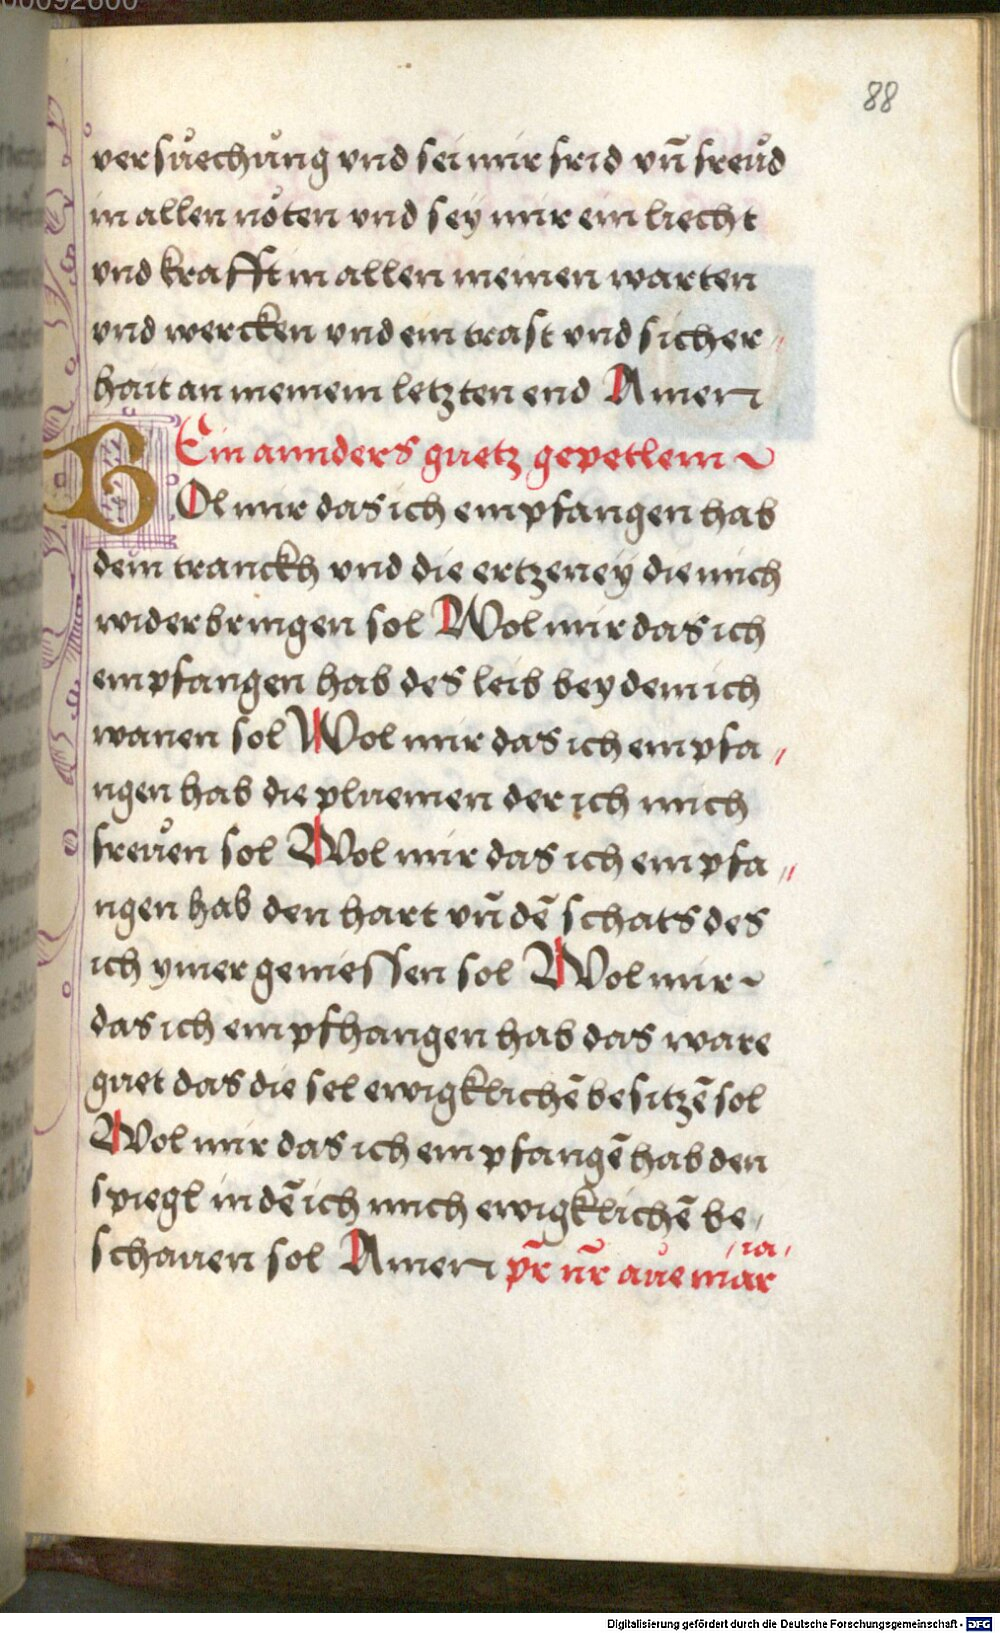 88
versůechůng vnd sei mir frid vn̄ freůd
in allen nöten vnd sey mir ein liecht
vnd krafft in allen meinen warten
vnd wercken vnd ein trast vnd sicher〃
hait an meinem letzten end Amen
Ein annders guetz gepetlein ~
WOl mir das ich empfangen hab
dein tranckh vnd die ertzeney die mich
widerbringen sol Wol mir das ich
empfangen hab des leib bey dem ich
wanen sol Wol mir das ich empfa〃
ngen hab die pluemen der ich mich
freůen sol Wol mir das ich empfa〃
ngen hab den hart vn̄ dē schats des
ich ymer geniessen sol Wol mir ~
das ich empfhangen hab das ware
guet das die sel ewigklichē besitzē sol
Wol mir das ich empfangē hab den
spiegl in dē ich mich ewigklichē be〃
schauen sol Amen pr̄ nr̄ aue mar
ia
Digitalisierung gefördert durch die Deutsche Forschungsgemeinschaft - DFG